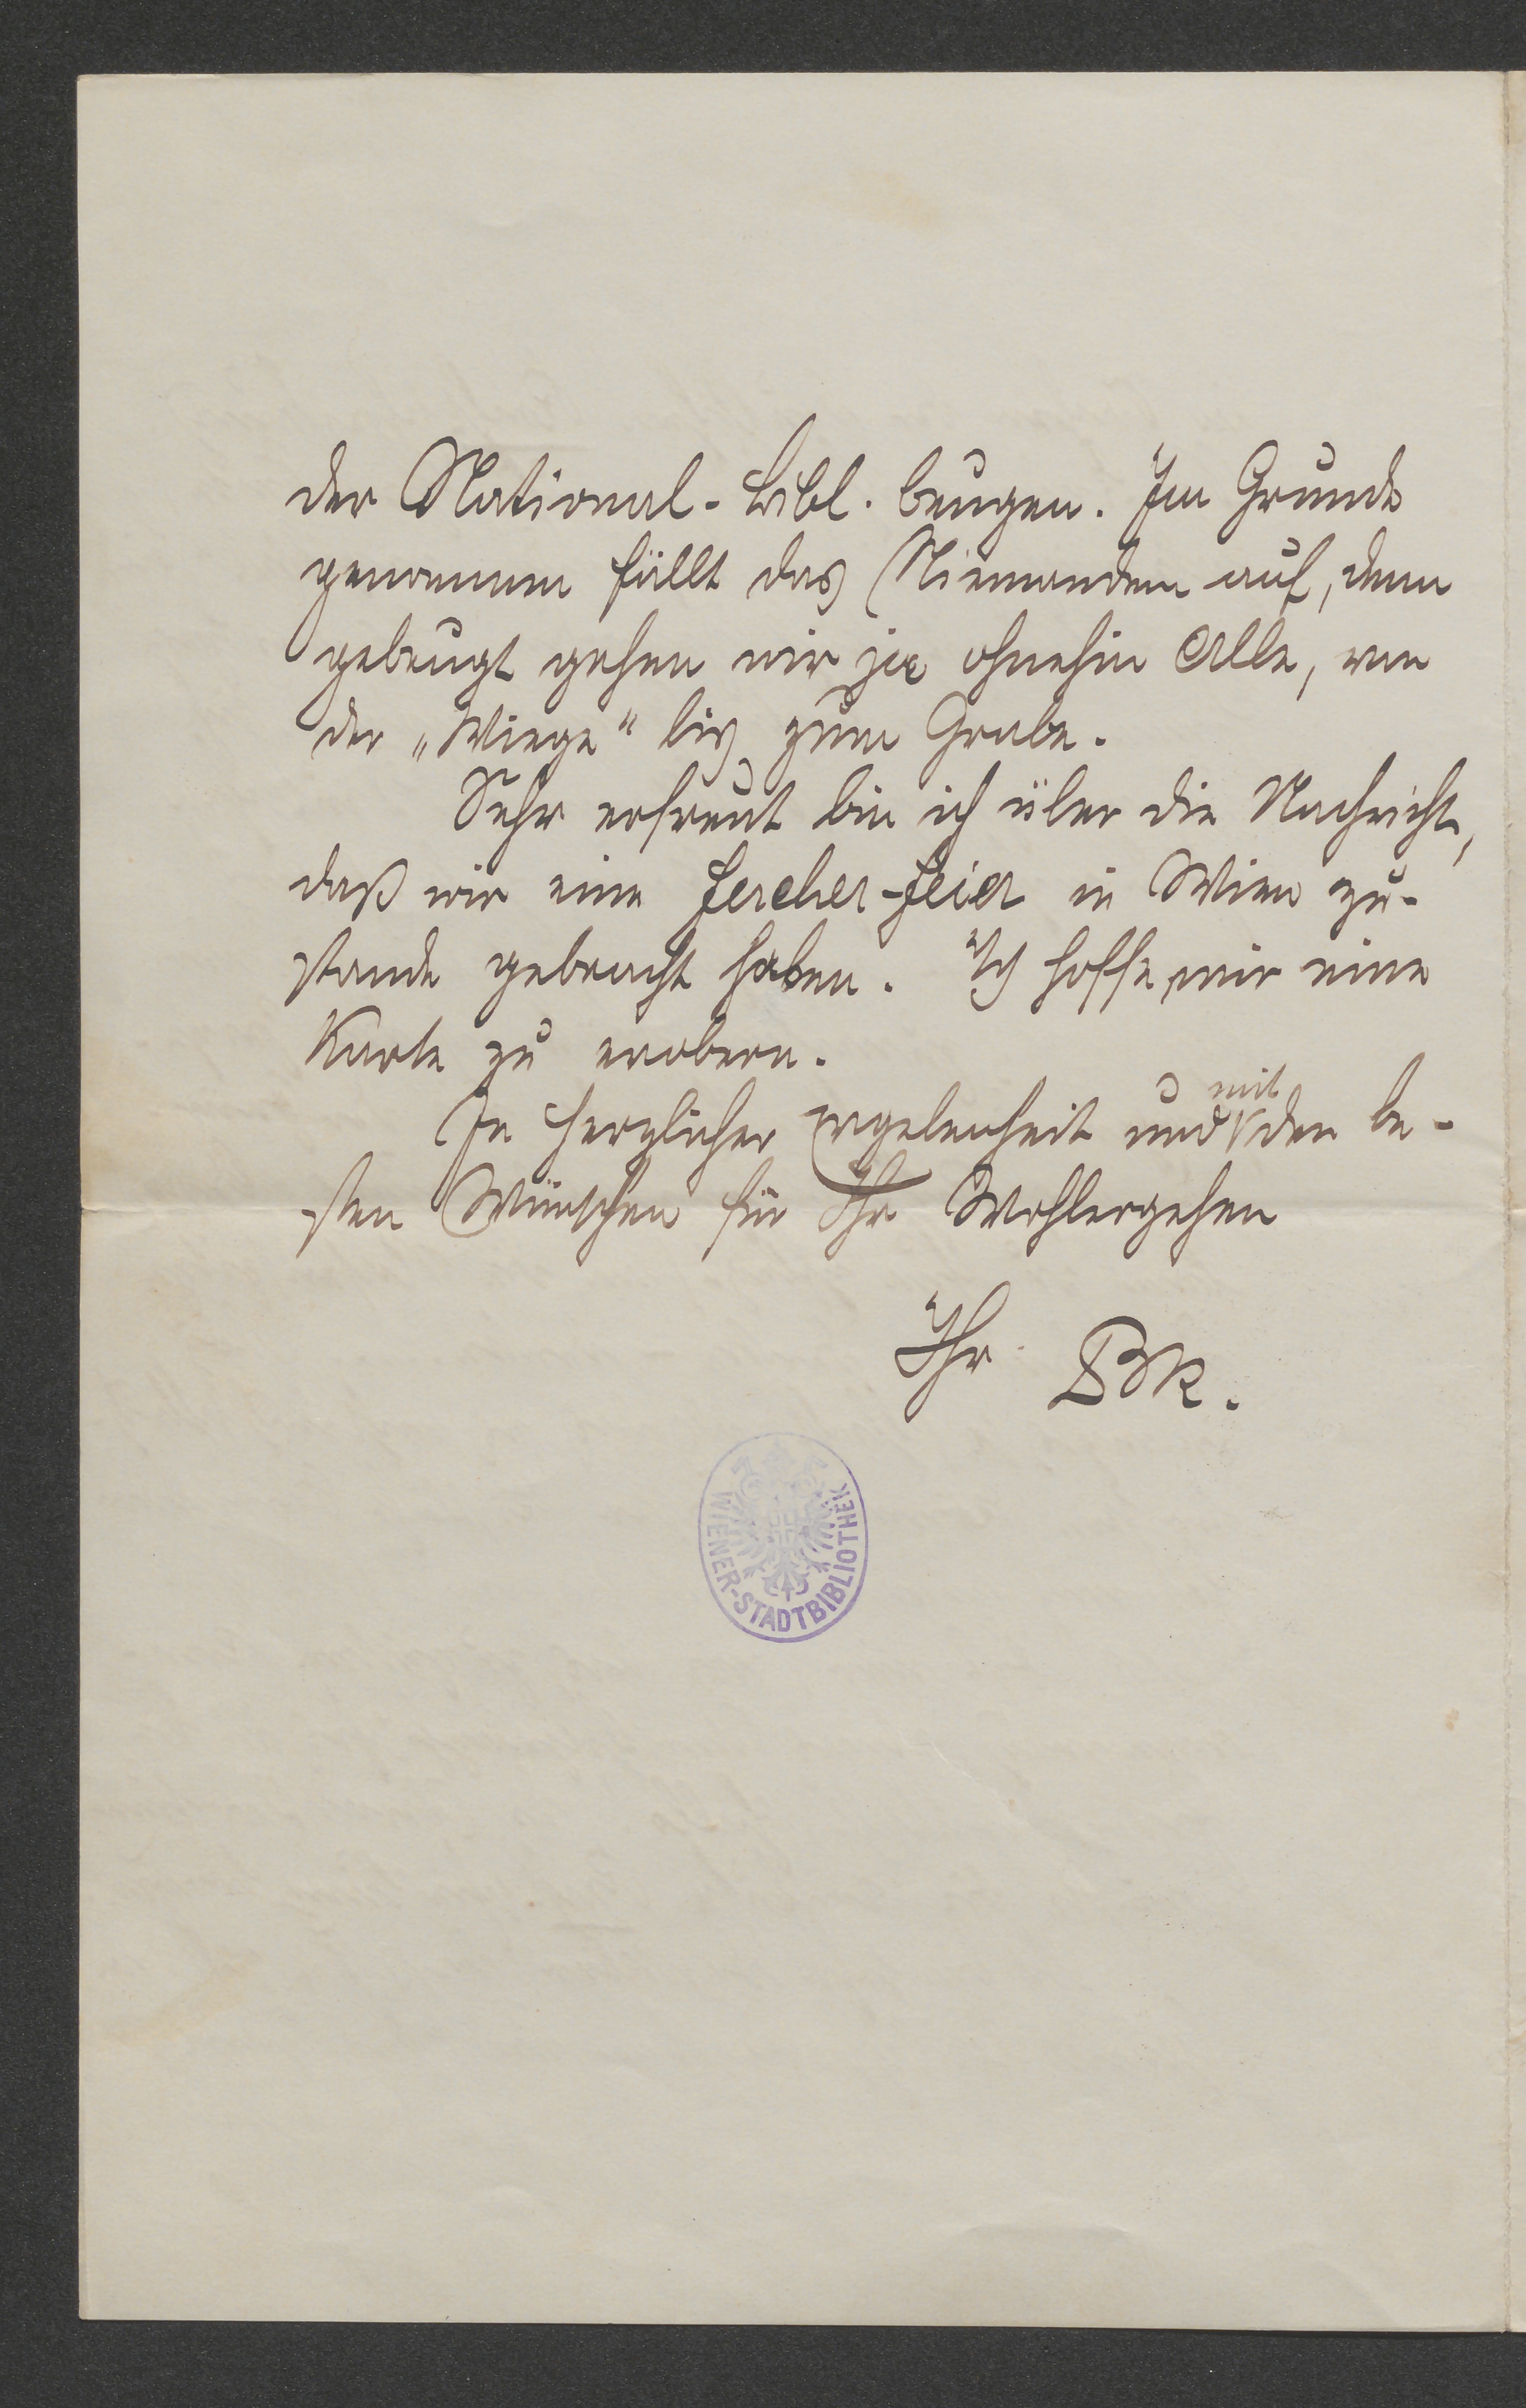 der National-Bibl. beugen. Im Grunde
genommen fällt das Niemandem auf, denn
gebeugt gehen wir ja ohnehin Alle, von
der „Wiege“ bis zum Grabe.
Sehr erfreut bin ich über die Nachricht,
daß wir eine Fercher-Feier in Wien zu-
stande gebracht haben. Ich hoffe, mir eine
Karte zu erobern.
In herzlicher Ergebenheit und mit den be-
sten Wünschen für Ihr Wohlergehen
Ihr BK.
WIENER-STADTBIBLIOTHEK